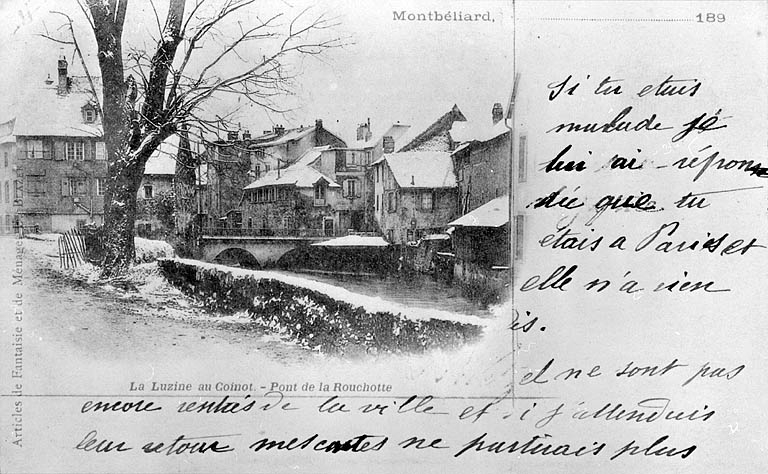 Montbéliard, 189
Si tu etais
malade je
lui ai répon
due que tu
étais a Paris et
elle n'a rien
is.
il ne sont pas
encore rentrés de la ville et si j'attenduis
leur retour mes cartes ne partirais plus
La Luzine au Coinot. - Pont de la Rouchotte
Articles de Fantaisie et de Ménage